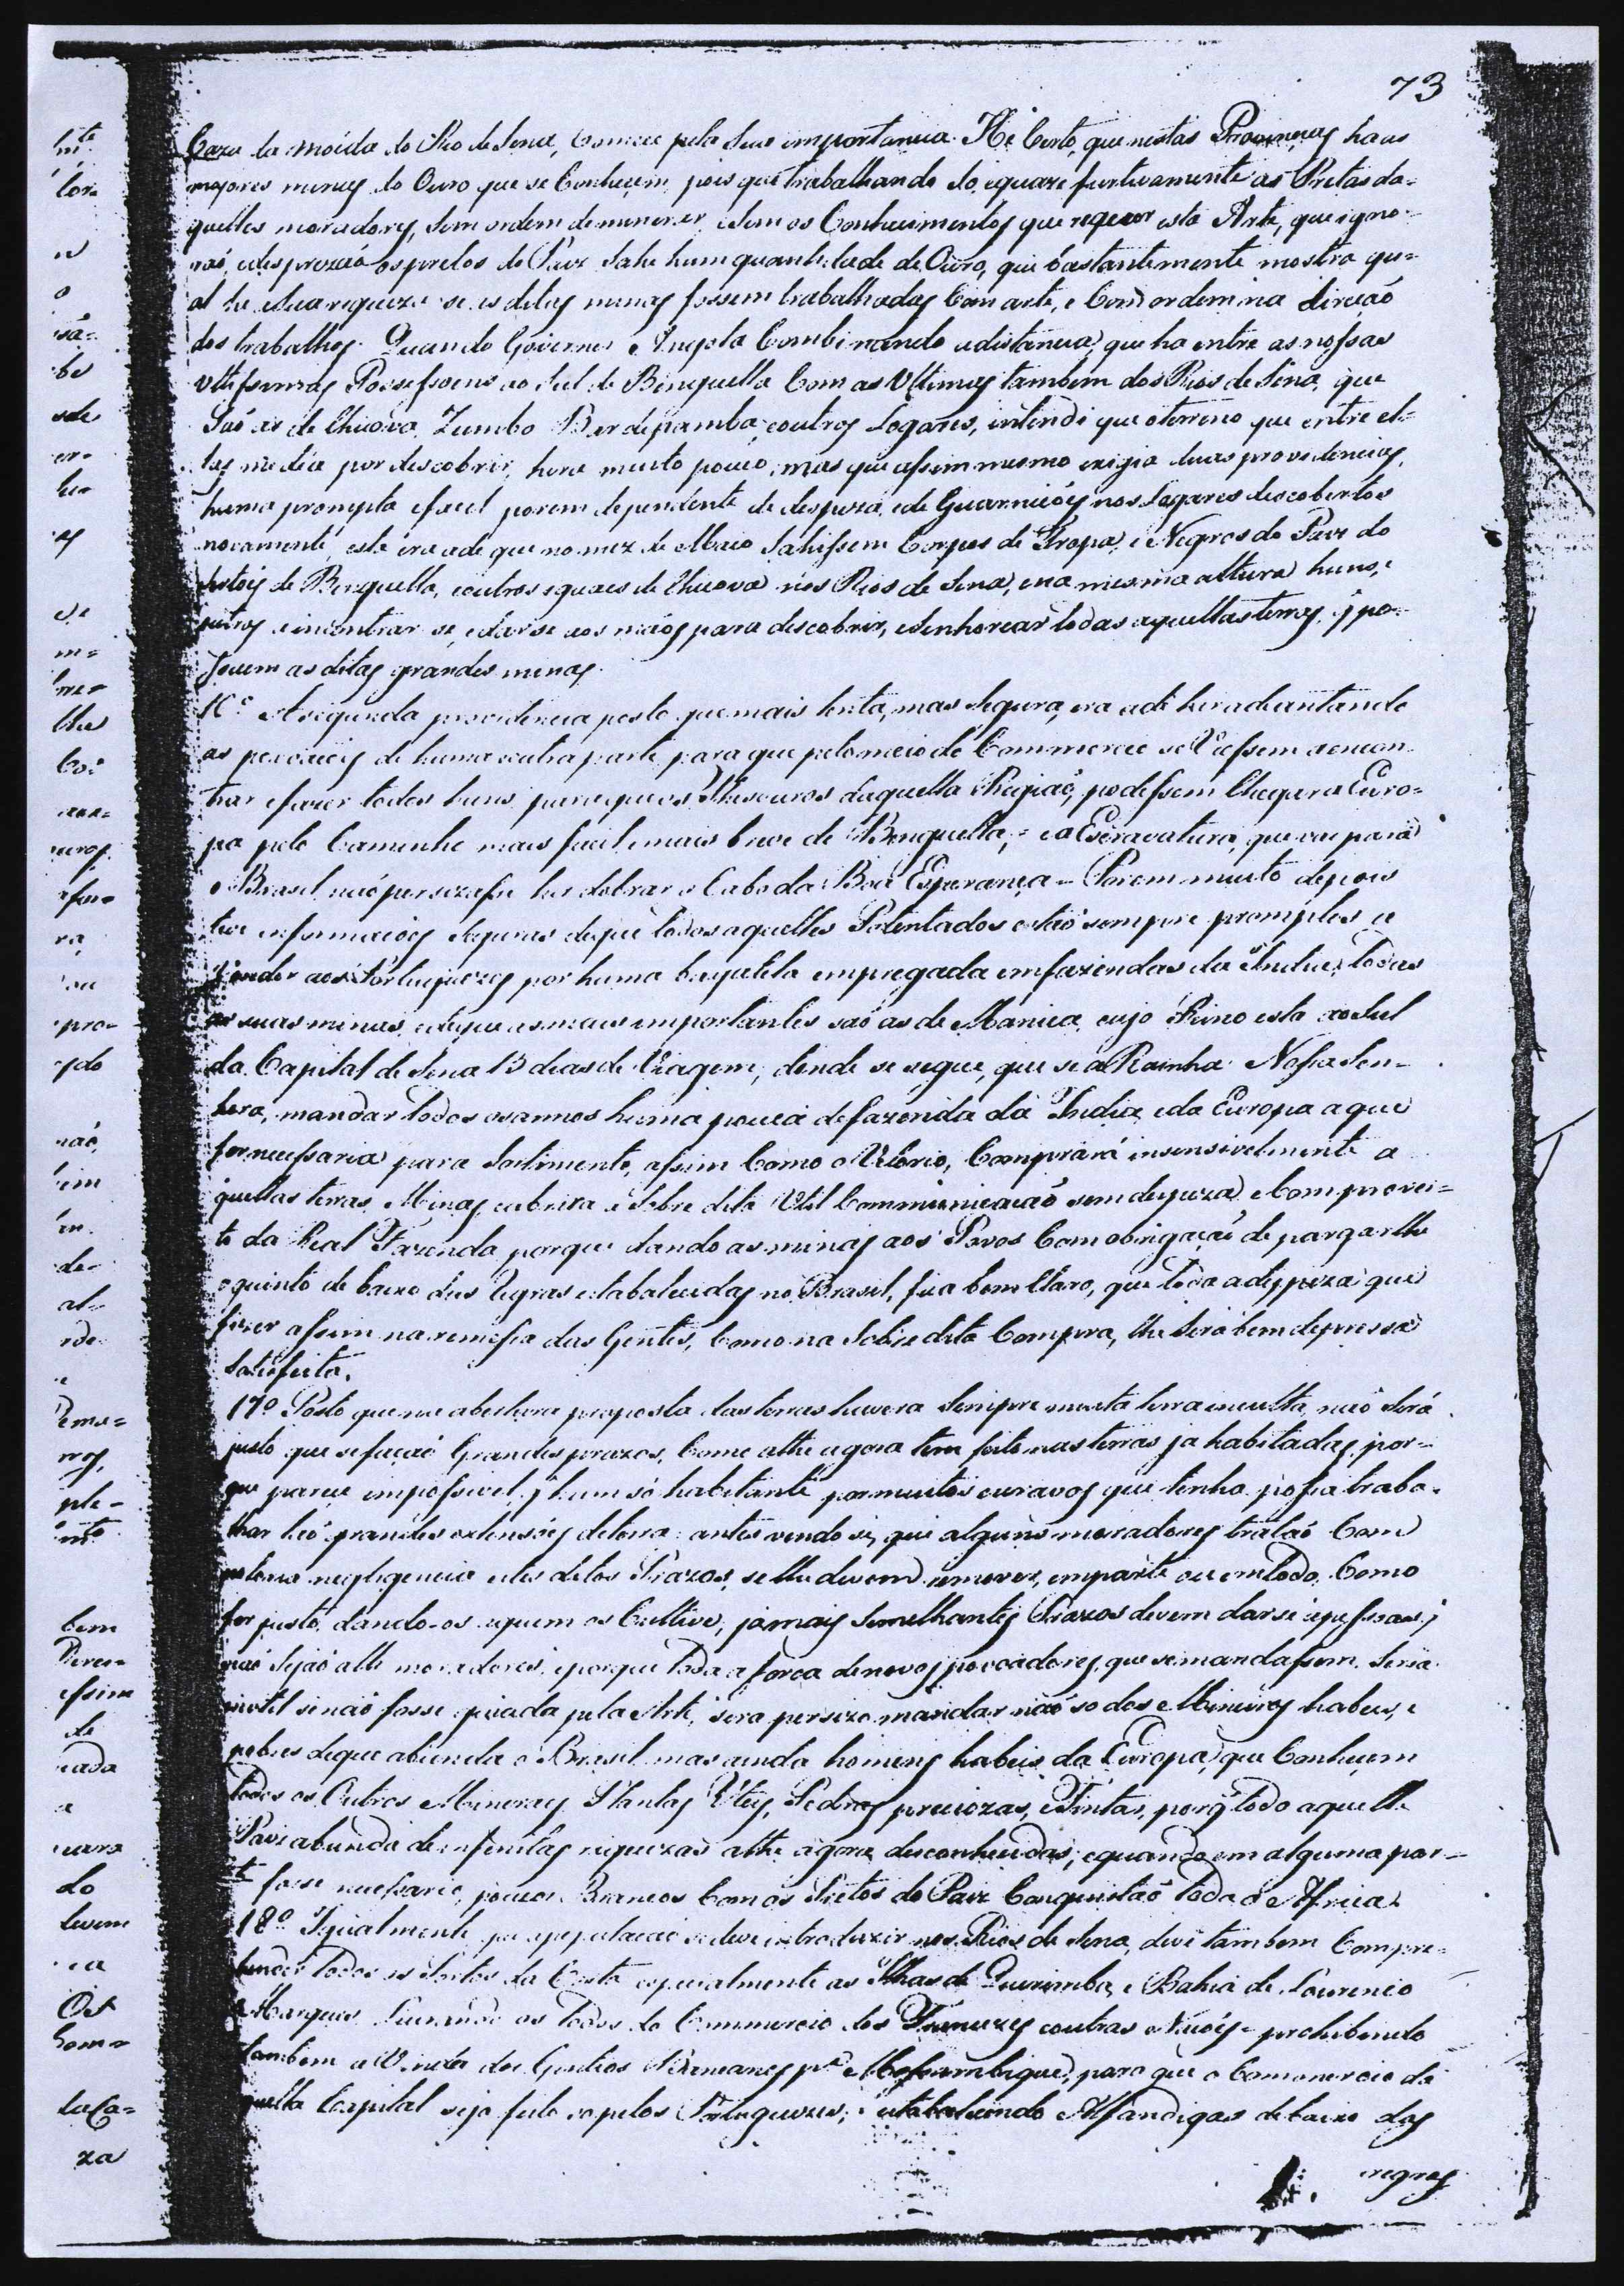 73
Caza da moéda do Rio de Sena, como pela sua importancia. Hé Certo, que nestas Provincias ha as
mayores minas do Ouro que se Conhecem, pois que trabalhando so, e quaze furtivamente as Pretas da-
quelles moradores, sem ordem de minerar, e sem os Conhecimentos que requer esta Arte, que igno-
raó, e desprezaó os pretos do Paiz Sahe hum quantidade de Ouro, que bastantemente mostra qu-
al he a sua riqueza se as ditas minas fossem trabalhadas Com arte, e Com ordem na direcaó
dos trabalhos. Quando Governei Angola Combinando a distancia, que ha entre as nossas
Ultissimas Possessoens ao Sul de Benguella Com as Ultimas tambem dos Rios de Sena, que
Saó as de Chicova, Zumbo, e outros Logares, intendi que o terreno que entre el-
las media por descobrir, hera muito pouco, mas que assim mesmo exigia duas providencias,
huma prompta e facil porem dependente de despeza, e de Guarnicóes nos Logares descobertos
novamente, esta éra a de que no mez de Maio Sahissem Corpos de Tropa, e Negros do Paiz do
Certoés de Benguella, e outros iguaes de Chicova nos Rios de Sena, e na mesma altura huns, e
outros a incontrar se, e dar se as máos para descobrir, e senhorear todas aquellas terras, q̃ po-
ssuem as ditas grandes minas.
16º A segunda providencia posto que mais lenta, mas segura, era a de hir adiantando
as povoacóes de huma e outra parte para que pelo meio do Commercio se Viessem a encon-
trar e fazer todos huns, para que os Thesouros daquella Regiaó, podessem Chegar a Euro-
pa pelo Caminho mais facil e mais breve de Benguella, e a Escravatura, que vai para
o Brasil naó persizasse hir dobrar o Cabo da Boa Esperança - Porem muito depois
tive informacóes Seguras de que todos aquelles Potentados estaó sempre promptos a
Vender aos Portuguezes por huma bagatela empregada em fazendas da India, todas
as suas minas, e de que as mais importantes saó as de Manica, cujo Reino esta ao Sul
da Capital de Sena 13 dias de Viagem, donde se segue, que se a Rainha Nossa Sen-
hora, mandar todos os annos huma pouca de fazenda da India, e da Europa a que
for necessaria para Sortimento, assim Como o Velorio, Comprará insensivelmente a
quellas terras, Minas, e abrira a Sobre dita Util Communicacaó sem despeza, e Com provei-
to da Real Fazenda, porque dando as minas aos Povos Com obrigaçaó de pargar lhe
o quinto de baixo das Regras estabalecidas no Brasil, fica bem Claro, que toda a despeza que
fizer assim na remessa das Gentes, Como na Sobre dita Compra, lhe Será bem depressa
Satisfeita.
17º Posto que na abertura proposta das terras havera Sempre muita terra inculta, naó Será
justo que se façaó Grandes prazos, Como athe agora tem feito nas terras ja habitadas, por-
que parece impossivel, q̃ hum só habitante por muitos escravos que tenha possa traba-
lhar taó grandes extensóes de terra: antes vendo se, que alguns moradores trataó Com
notoria negligencia estes ditos Prazos, se lhe devem remover, em parte ou em todo, Como
for justo, dando-os a quem os Cultive, ja mais Semelhantes Prazos devem dar se a pessoas, q̃
naó Sejaó alli moradores, e porque toda a forca de novos povoadores, que se mandassem, Seria
inutil se naó fosse guiada pela Arte, sera persizo mandar naó so dos Mineiros habeis, e
pobres de que abunda o Brasil mas ainda homens habeis da Europa, que Conheçem
todos os Outros Mineraes, Plantas Uteis, Pedras preciozas, e Tintas, porq̃ todo aquelle
Paiz abunda de infinitas riquezas athe agora desconhecidas; e quando em alguma par-
te fosse necessario, poucos Brancos Com os Pretos do Paiz Conquistaó toda a Africa.
18º Igualmente a populacaó se deve introduzir nos Rios de Sena, deve tambem Compre-
hender todos os Portos da Costa especialmente as Ilhas de Quirimba, e Bahia de Lourenco
Marques Livrando os todos do Commercio dos Francezes e outras Nacóes - prohibindo
tambem a Vinda dos Gentios Banianes pª Mossambique, para que o Commercio da
quella Capital seja feito so pelos Portuguezes, e estabalecendo Alfandigas debaixo das
regras